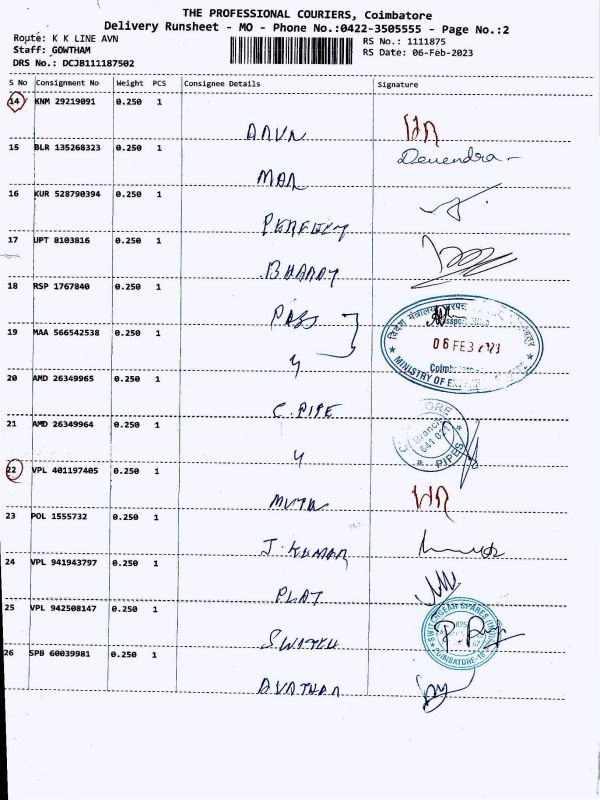 THE PROFESSIONAL COURIERS, Coimbatore
Delivery Runsheet - MO - Phone No.:0422-3505555 - Page No.:2
Route: K K LINE AVN
Staff: GOWTHAM
DRS No.: DCJB111187502
RS No.: 1111875
RS Date: 06-Feb-2023
S No Consignment No Weight PCS Consignee Details Signature
14 KNM 29219091 0.250 1
15 BLR 135268323 0.250 1 Devendra
MAR
16 KUR 528790394 0.250 1
17 UPT 8103816 0.250 1
18 RSP 1767840 0.250 1
PASS
19 MAA 566542538 0.250 1
06 FEB 2023
MINISTRY OF
20 AMD 26349965 0.250 1
C. PIPE
21 AMD 26349964 0.250 1
Branch
641 021
PIPES
22 VPL 401197405 0.250 1
MUTU
23 POL 1555732 0.250 1
J. KUMAR
24 VPL 941943797 0.250 1
PLAT
25 VPL 942508147 0.250 1
SWITCHGEAR SPARES
COIMBATORE-18
26 SPB 60039981 0.250 1